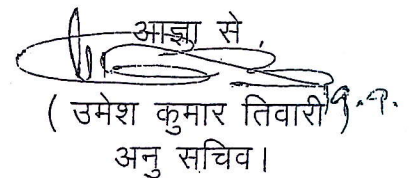 आज्ञा से,
( उमेश कुमार तिवारी )
अनु सचिव।